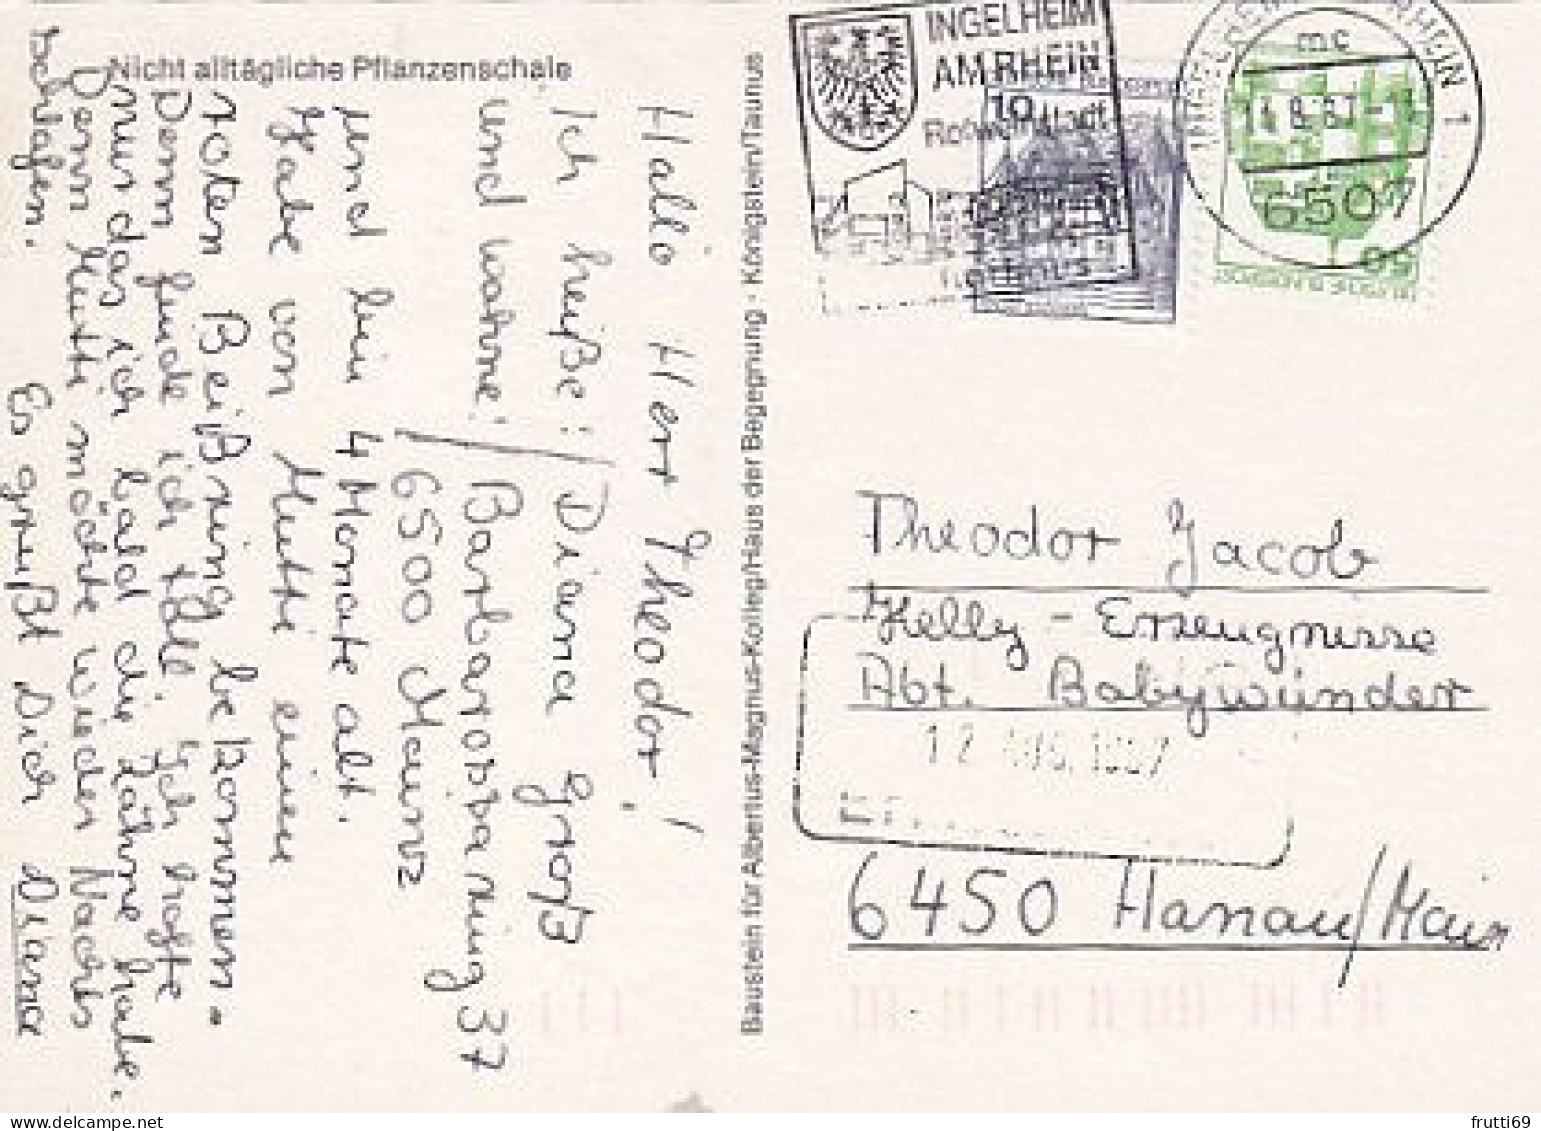 Nicht alltägliche Pflanzenschale
Hallo Herr Theodor!
Ich heiße: Diana Groß
und wohne: Barbarossaring 37
6500 Mainz
und bin 4 Monate alt.
Habe von Mutti einen
roten Beißring bekommen.
Denn finde ich toll. Ich hoffe
nur das ich bald die Zähne habe.
Denn Mutti möchte wieder Nachts
schlafen.
Es grüßt Dich Diana
Baustein für Albertus-Magnus-Kolleg/Haus der Begegnung - Königstein/Taunus
INGELHEIM
AM RHEIN
10
INGELHEIM RHEIN 1
mc
6507
50
DEUTSCHE BUNDESPOST
Theodor Jacob
Helly - Erzeugnisse
Abt. Babywunder
12. AUG. 1987
6450 Hanau/Main
frutti69